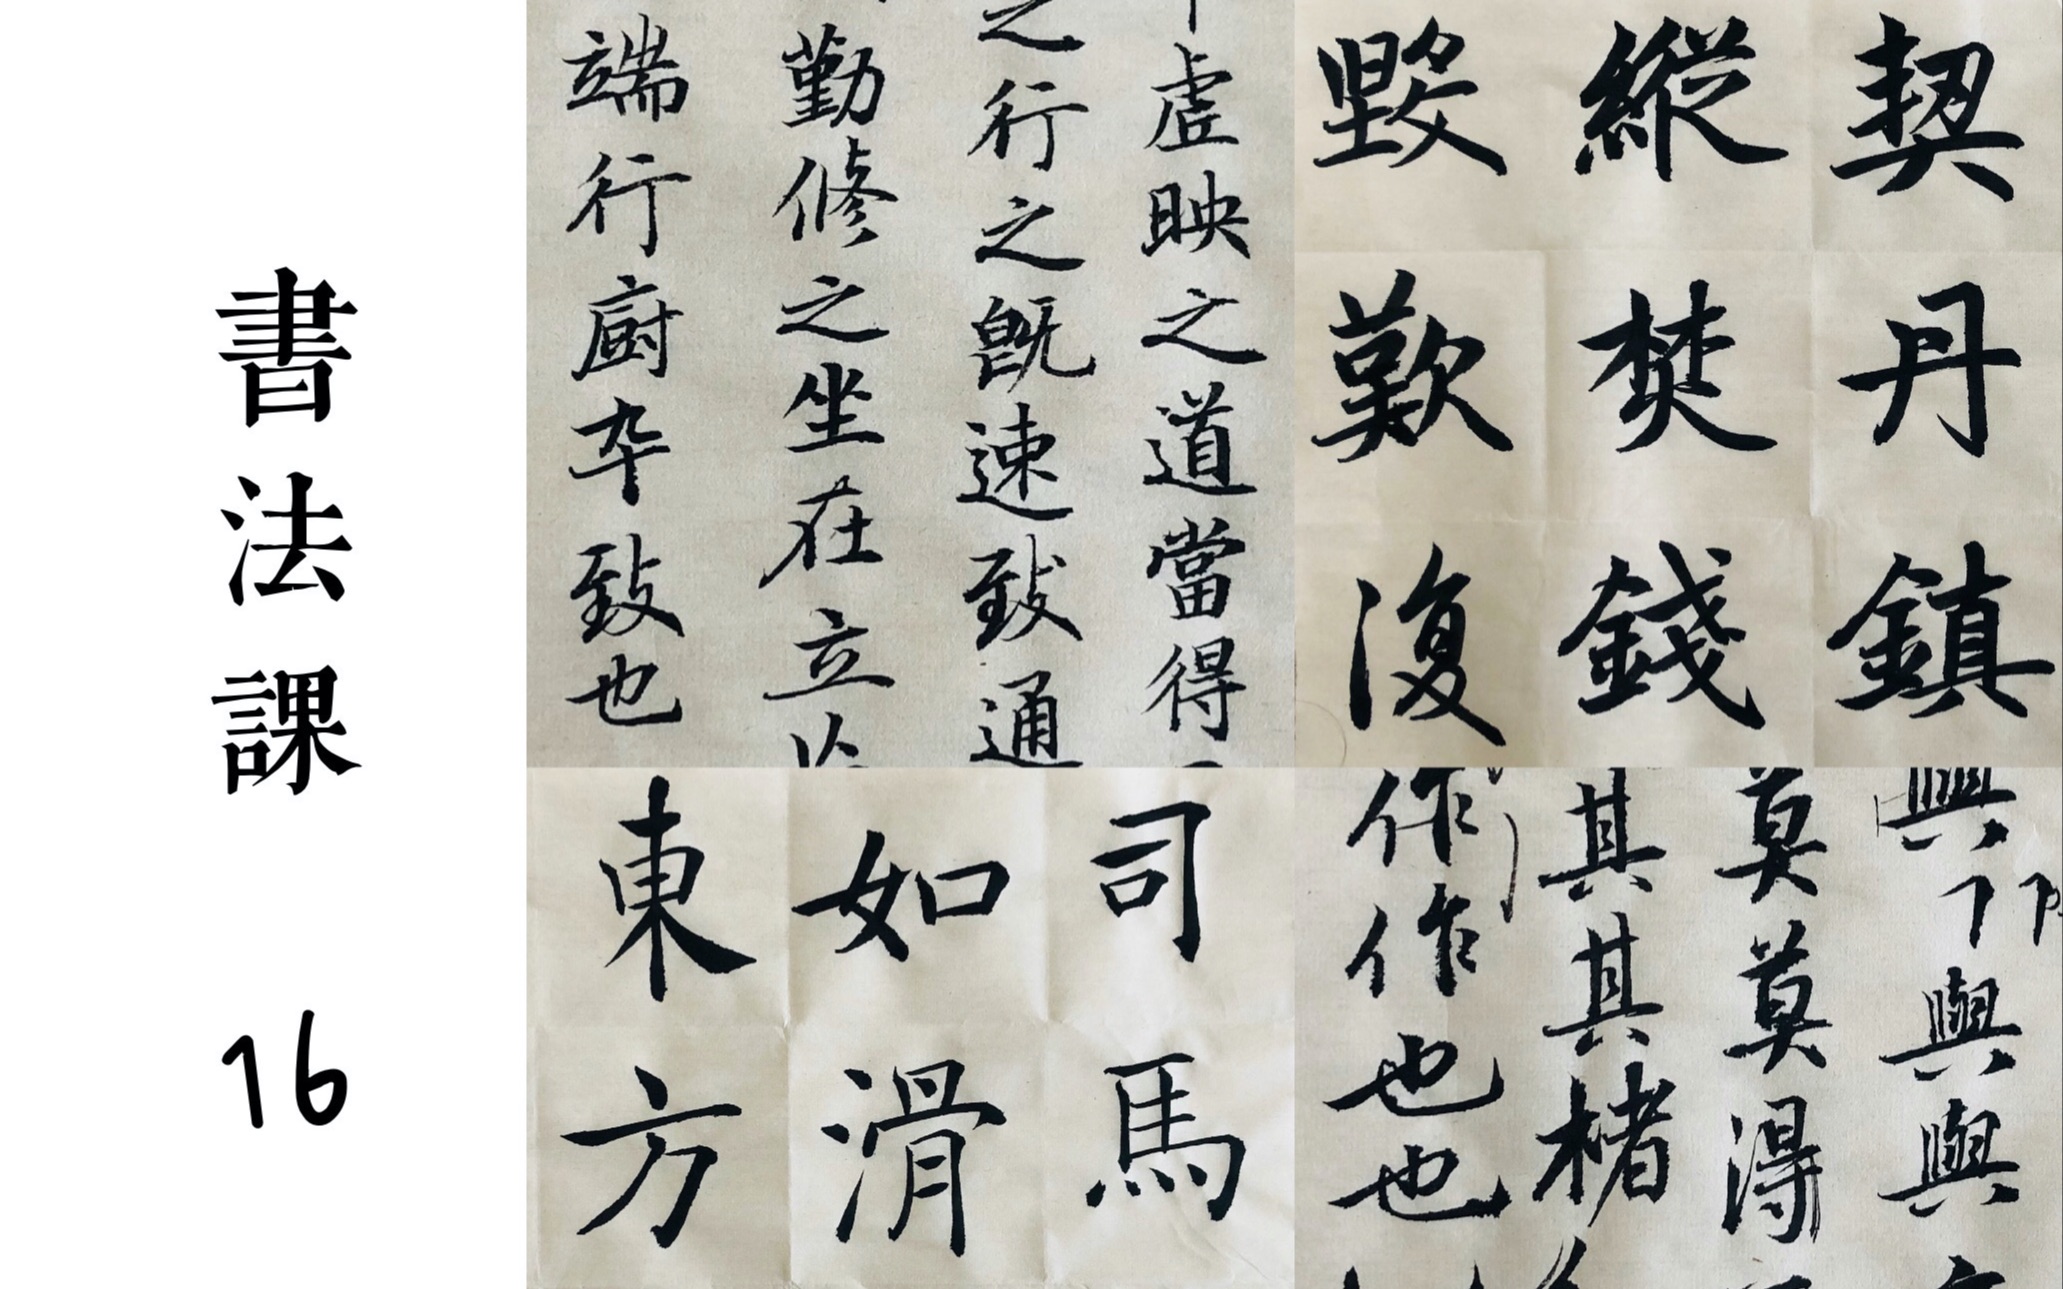 書法課
16
虛映之道當得
之行之既速致通
勤修之坐在立
端行廚卒致也
契丹鎮
縱焚錢
歎復
司馬
如滑
東方
興與與
莫莫得
其其楮
作作也也